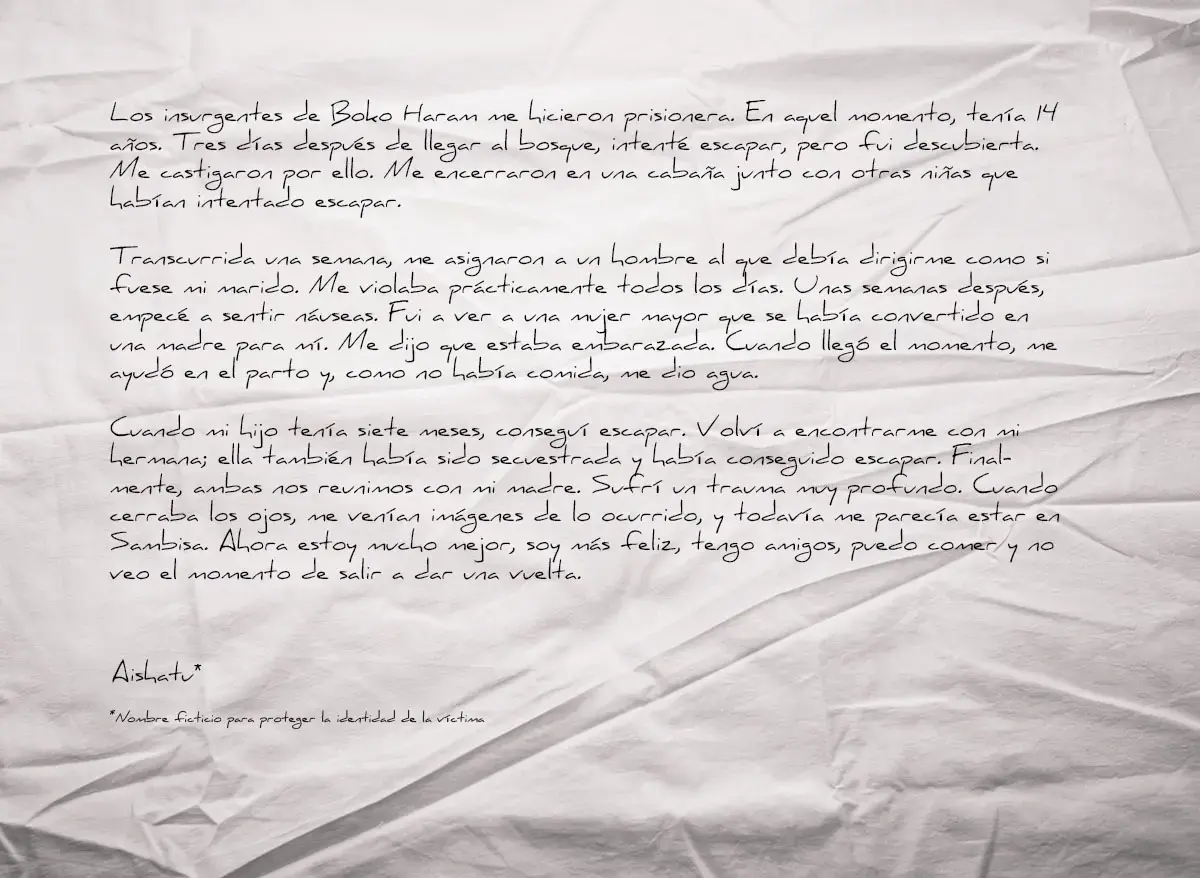 Los insurgentes de Boko Haram me hicieron prisionera. En aquel momento, tenía 14
años. Tres días después de llegar al bosque, intenté escapar, pero fui descubierta.
Me castigaron por ello. Me encerraron en una cabaña junto con otras niñas que
habían intentado escapar.
Transcurrida una semana, me asignaron a un hombre al que debía dirigirme como si
fuese mi marido. Me violaba prácticamente todos los días. Unas semanas después,
empecé a sentir náuseas. Fui a ver a una mujer mayor que se había convertido en
una madre para mí. Me dijo que estaba embarazada. Cuando llegó el momento, me
ayudó en el parto y, como no había comida, me dio agua.
Cuando mi hijo tenía siete meses, conseguí escapar. Volví a encontrarme con mi
hermana; ella también había sido secuestrada y había conseguido escapar. Final-
mente, ambas nos reunimos con mi madre. Sufrí un trauma muy profundo. Cuando
cerraba los ojos, me venían imágenes de lo ocurrido, y todavía me parecía estar en
Sambisa. Ahora estoy mucho mejor, soy más feliz, tengo amigos, puedo comer y no
veo el momento de salir a dar una vuelta.
Aishatu*
*Nombre ficticio para proteger la identidad de la víctima